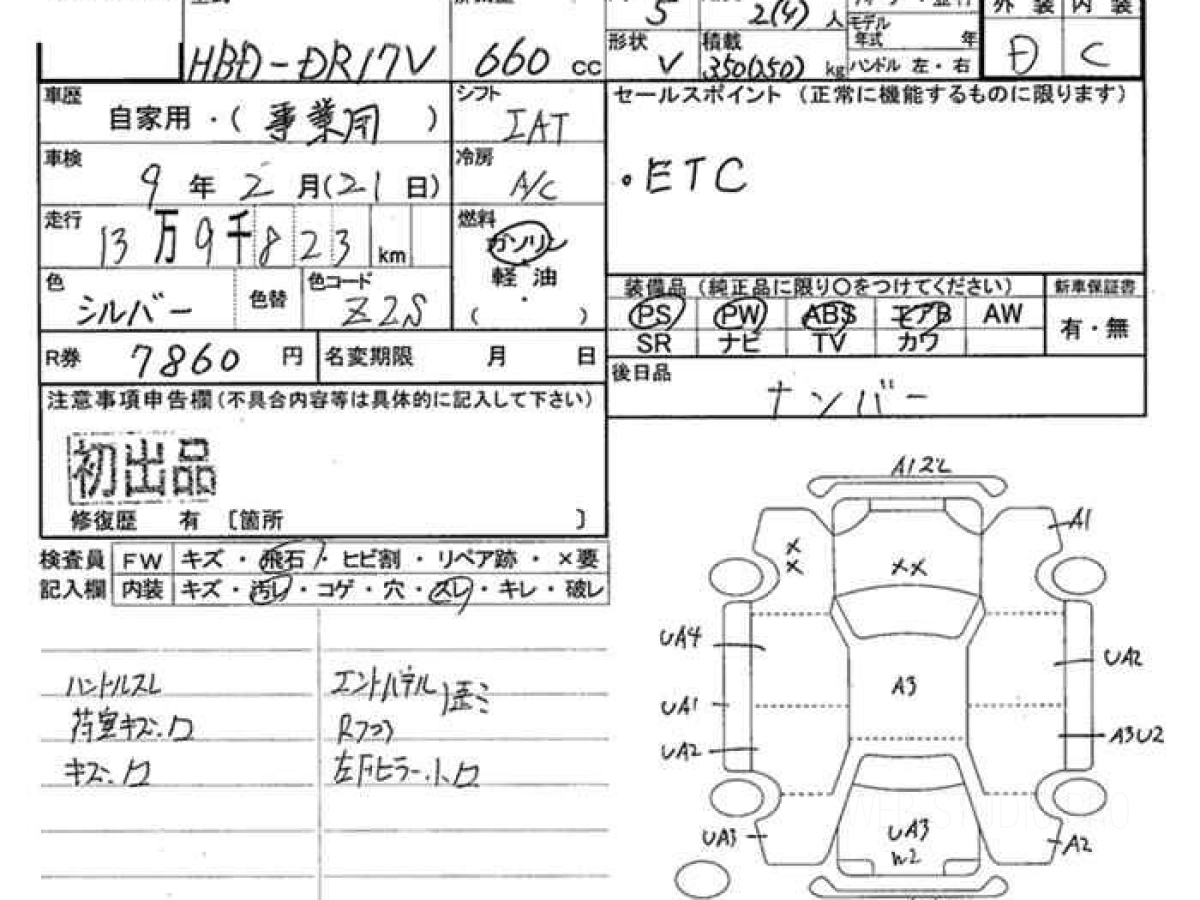 5 2(4) 人
モデル
年式 年
外装 内装
HBD-DR17V 660 cc
形状 V
積載 350(250) kg
ハンドル 左・右
D C
車歴 自家用・(事業用)
シフト IAT
セールスポイント (正常に機能するものに限ります)
車検 9年2月(21日)
冷房 A/C
・ETC
走行 13万9千823 km
燃料 ガソリン
軽油
( ・ )
色 シルバー 色替 色コード Z2S
装備品 (純正品に限り○をつけてください) 新車保証書
PS PW ABS エアB AW 有・無
SR ナビ TV カワ
R券 7860 円 名変期限 月 日
後日品 ナンバー
注意事項申告欄 (不具合内容等は具体的に記入して下さい)
初出品
修復歴 有 〔箇所 〕
検査員 FW キズ・飛石・ヒビ割・リペア跡・×要
記入欄 内装 キズ・汚レ・コゲ・穴・スレ・キレ・破レ
ハンドルスレ
荷室キズ.ワ
キズ.ワ
エンドパネル
左Fピラー.小ワ
A1
XX XX
UA4
UA2
A3
UA1
A3U2
UA2
UA3
UA3
W2
A2